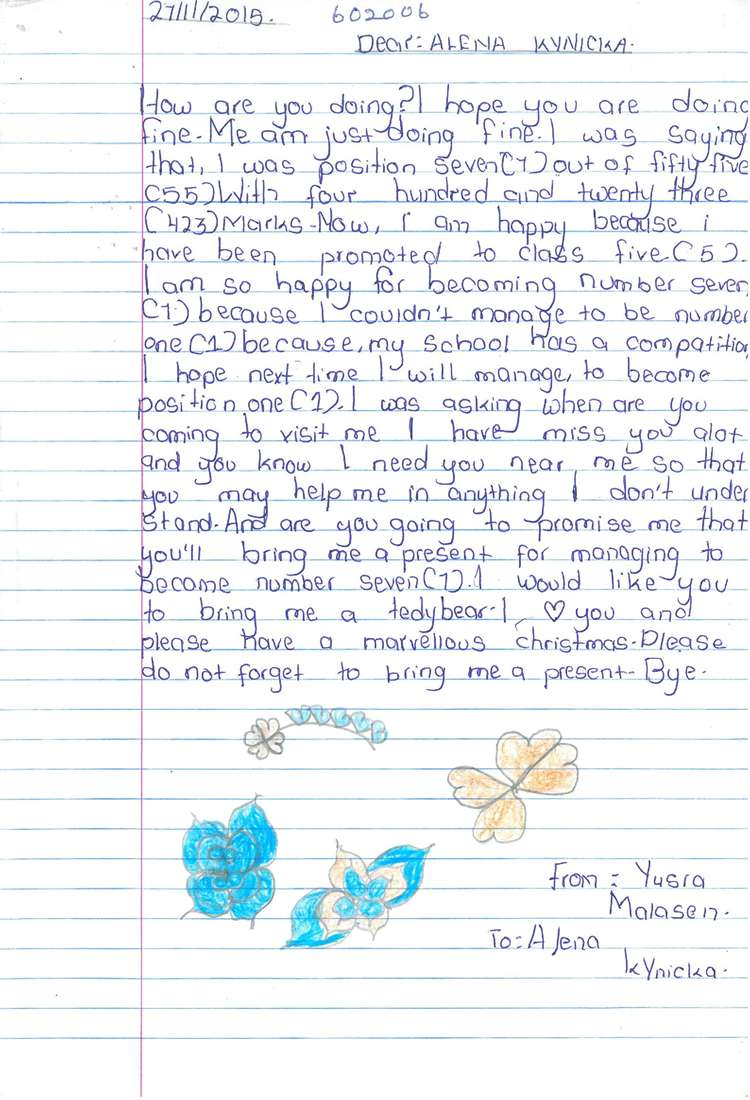 27/11/2015. 602006
Dear: ALENA KYNICKA.
How are you doing? I hope you are doing
fine. Me am just doing fine. I was saying
that, I was position seven (7) out of fifty five
(55) With four hundred and twenty three
(423) Marks. Now, I am happy because i
have been promoted to class five (5).
I am so happy for becoming number seven
(7) because I couldn't manage to be number
one (1) because, my school has a compatition
I hope next time I will manage, to become
position one (1). I was asking when are you
coming to visit me I have miss you alot
and you know I need you near me so that
you may help me in anything I don't under
stand. And are you going to promise me that
you'll bring me a present for managing to
become number seven (7). I would like you
to bring me a tedybear. I ♡ you and
please have a marvellous christmas. Please
do not forget to bring me a present. Bye.
From: Yusra
Malasen.
To: Alena
kYnicka.